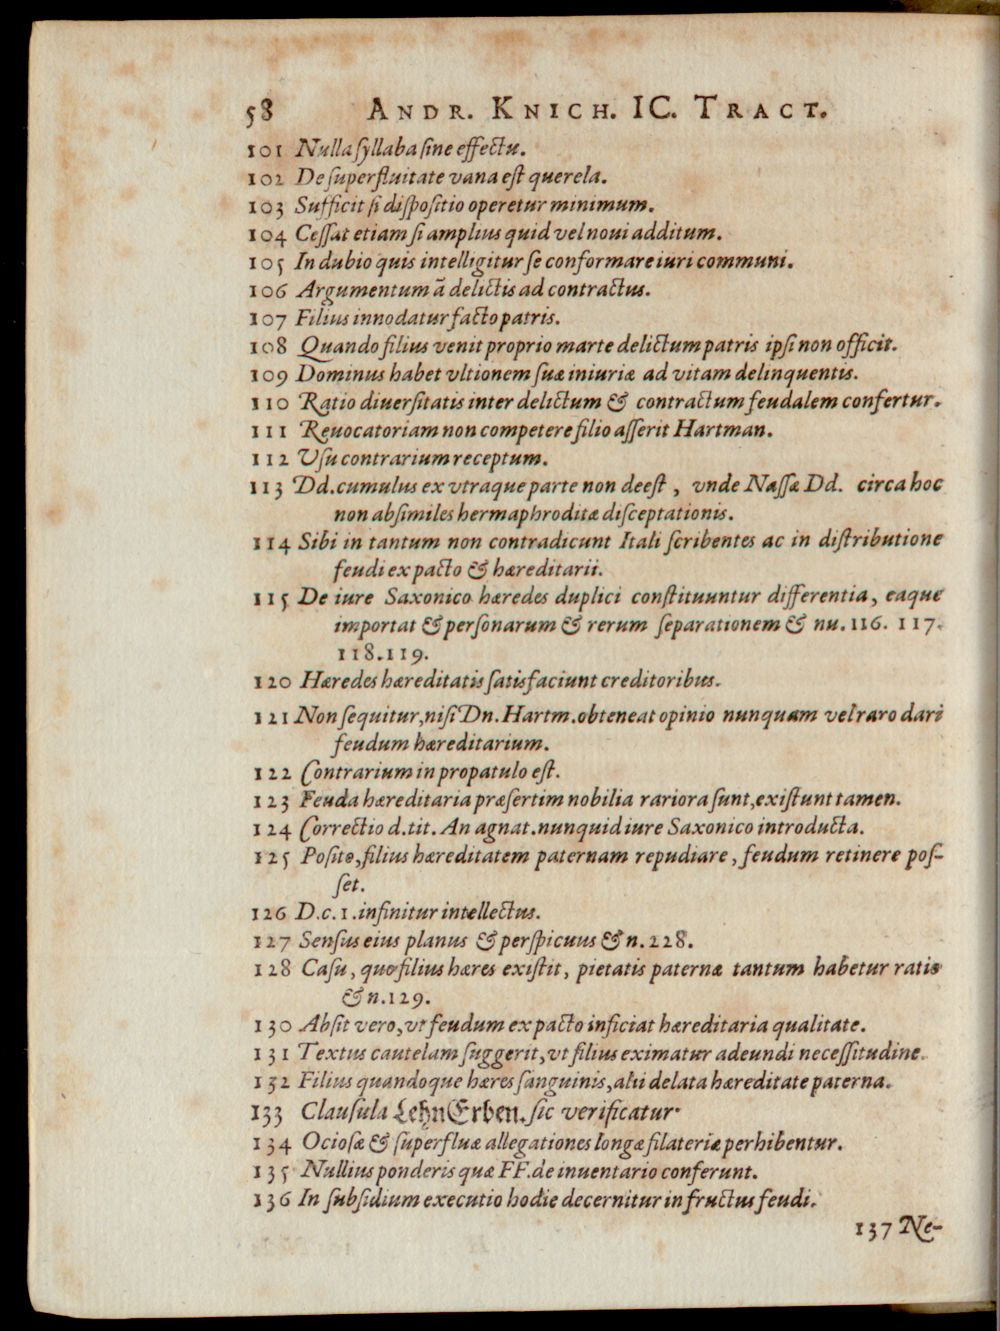 58 ANDR. KNICH. IC. TRACT.
101 Nulla ſyllaba ſine effectu.
102 De ſuperfluitate vana eſt querela.
103 Sufficit ſi diſpoſitio operetur minimum.
104 Ceſſat etiam ſi amplius quid vel noui additum.
105 In dubio quis intelligitur ſe conformare iuri communi.
106 Argumentum à delictis ad contractus.
107 Filius innodatur facto patris.
108 Quando filius venit proprio marte delictum patris ipſi non officit.
109 Dominus habet vltionem ſuæ iniuriæ ad vitam delinquentis.
110 Ratio diuerſitatis inter delictum & contractum feudalem confertur.
111 Reuocatoriam non competere filio aſſerit Hartman.
112 Vſu contrarium receptum.
113 Dd. cumulus ex vtraque parte non deeſt, vnde Naſſæ Dd. circa hoc
non abſimiles hermaphroditæ diſceptationis.
114 Sibi in tantum non contradicunt Itali ſcribentes ac in diſtributione
feudi ex pacto & hæreditarii.
115 De iure Saxonico hæredes duplici conſtituuntur differentia, eaque
importat & perſonarum & rerum ſeparationem & nu. 116. 117.
118. 119.
120 Hæredes hæreditatis ſatisfaciunt creditoribus.
121 Non ſequitur, niſi Dn. Hartm. obteneat opinio nunquam vel raro dari
feudum hæreditarium.
122 Contrarium in propatulo eſt.
123 Feuda hæreditaria præſertim nobilia rariora ſunt, exiſtunt tamen.
124 Correctio d. tit. An agnat. nunquid iure Saxonico introducta.
125 Poſito, filius hæreditatem paternam repudiare, feudum retinere poſ-
ſet.
126 D. c. 1. infinitur intellectus.
127 Senſus eius planus & perſpicuus & n. 228.
128 Caſu, quo filius hæres exiſtit, pietatis paternæ tantum habetur ratio
& n. 129.
130 Abſit vero, vt feudum ex pacto inficiat hæreditaria qualitate.
131 Textus cautelam ſuggerit, vt filius eximatur adeundi neceſſitudine.
132 Filius quandoque hæres ſanguinis, alii delata hæreditate paterna.
133 Clauſula LehnErben. ſic verificatur.
134 Ocioſæ & ſuperfluæ allegationes longæ filateriæ perhibentur.
135 Nullius ponderis quæ FF. de inuentario conferunt.
136 In ſubſidium executio hodie decernitur in fructus feudi.
137 Ne-